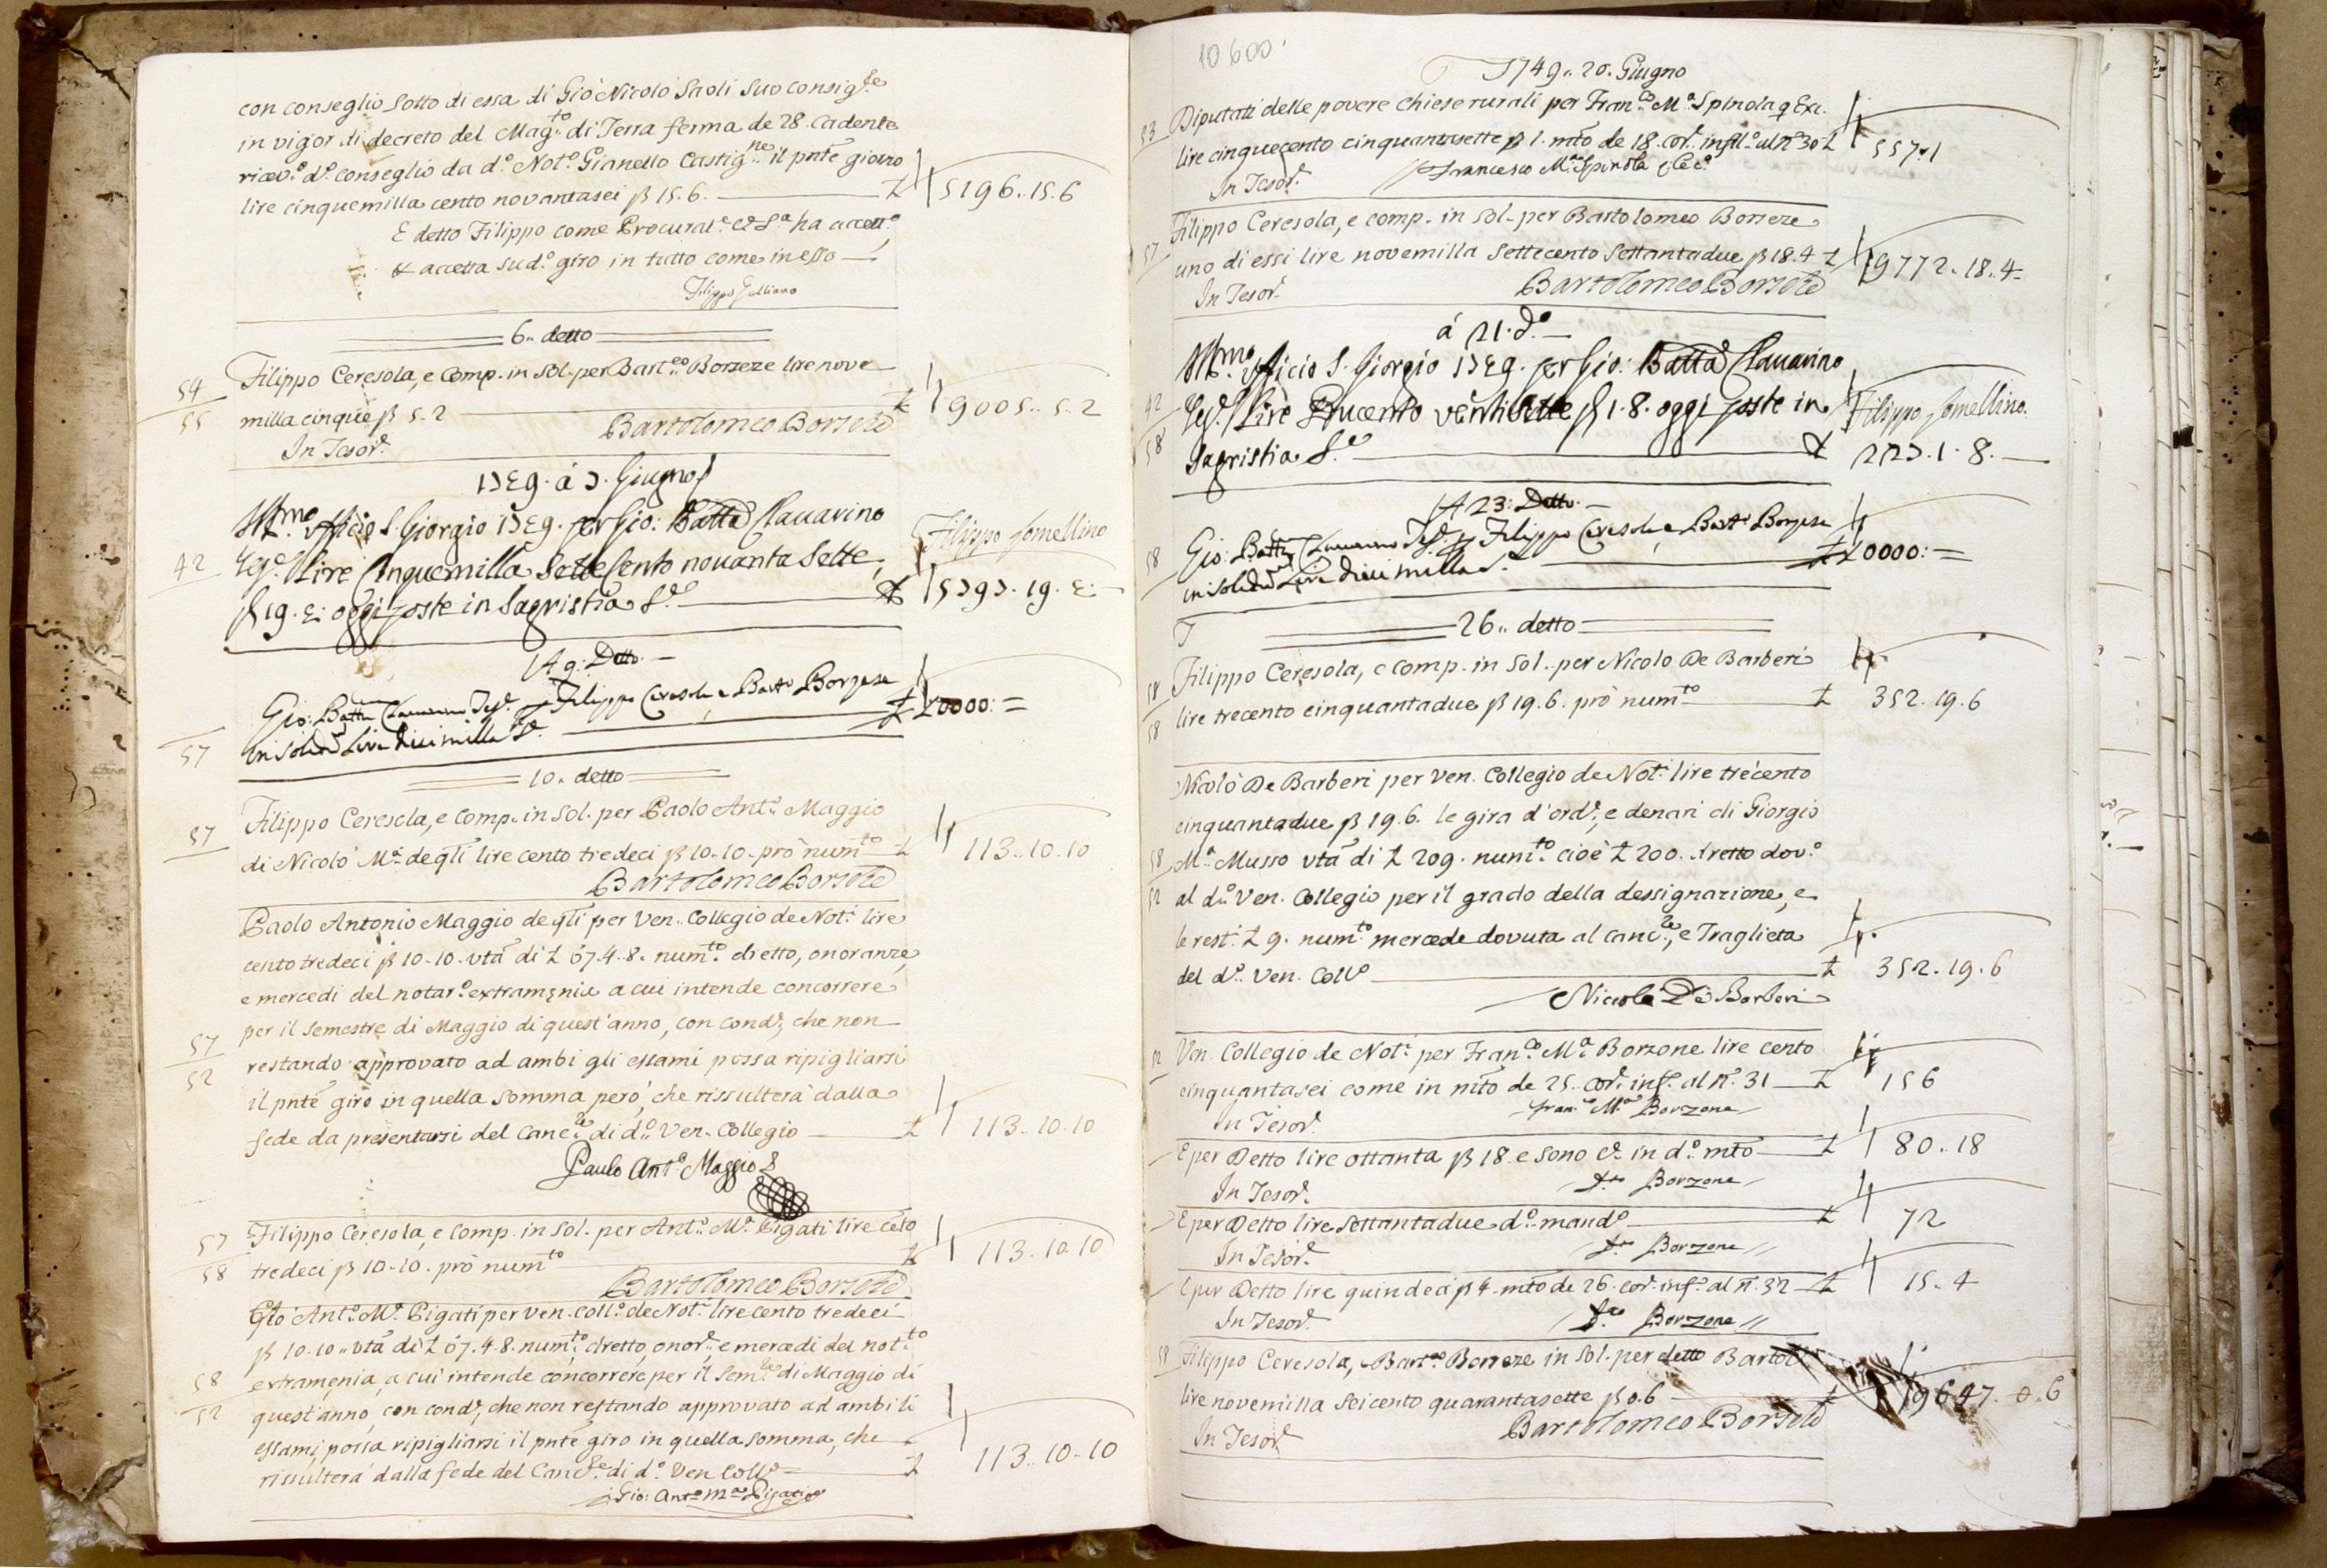 con conseglio sotto di essa di Giò Nicolò Saoli suo consig.re
in vigor di decreto del Mag.to di Terra ferma de 28. cadente
ricev.o d.o conseglio da d.o Not.o Gianello Castig.ne il pnte giorno
lire cinquemilla cento novantasei ß 15.6. £ 5196..15.6
E detto Filippo come Procurat.e ha accett.o
& accetta sud.o giro in tutto come in esso
Filippo
6.. detto
54
55
Filippo Ceresola, e Comp. in sol. per Bart.eo Borzeze lire nove
milla cinque ß 5.2 £ 9005..5.2
In Tesor.a Bartolomeo Borzese
1749. á 7. Giugno
Ill.mo Ufficio S. Giorgio 1749. per Gio: Batta Clavarino
42
Teg.e Lire Cinquemilla Sette Cento novanta Sette, Filippo Lomellino
ß 19. 4: oggi poste in Sagristia S.e £ 5797. 19. 4:
A 9: Detto.
57
Gio: Batta Clavarino Teg.e p Filippo Ceresola e Bart.o Borzese
in solidũ Lire dieci milla S.e £ 10000:=
10.. detto
57
Filippo Ceresola, e Comp. in sol. per Paolo Ant.o Maggio
di Nicolò M.a de qli lire cento tredeci ß 10-10. prò num.to £ 113..10.10
Bartolomeo Borzese
Paolo Antonio Maggio de qli per Ven. Collegio de Not.i lire
cento tredeci ß 10-10. vtã di £ 67.4.8. num.to diretto, onoranze,
e mercedi del notar.o extramenia a cui intende concorrere
57
52
per il semestre di Maggio di quest'anno, con cond.e, che non
restando approvato ad ambi gli essami possa ripigliarsi
il pnte giro in quella somma però, che rissulterà dalla
fede da presentarsi del Canc.re di d.o Ven. Collegio £ 113..10-10
Paulo Ant.o Maggio
57
58
Filippo Ceresola, e Comp. in sol. per Ant.o M.a Pigati lire cẽto
tredeci ß 10-10. prò num.to £ 113.10.10
Bartolomeo Borzese
Gio Ant.o M.a Pigati per Ven. Coll.o de Not.i lire cento tredeci
ß 10-10.. vtã di £ 67.4.8. num.to, diretto, onor.e, e mercedi del not.to
58
52
extramenia, a cui intende concorrere per il sem.re di Maggio di
quest'anno, con cond.e, che non restando approvato ad ambi li
essami, possa ripigliarsi il pnte giro in quella somma, che
rissulterà dalla fede del Canc.re di d.o Ven. Coll.o £ 113..10-10
Gio: Ant.o M.a Pigati
10600
1749.. 20. Giugno
53
Diputati delle povere chiese rurali per Fran.co M.a Spinola q Ecc.
lire cinquecento cinquantasette ß 1. mto de 18. cor.e infil.o al n.o 30 £ 557.1
In Tesor.a Francesco M.a Spinola
57
Filippo Ceresola, e comp. in sol. per Bartolomeo Borzeze
uno di essi lire novemilla settecento settantadue ß 18.4 £ 9772.18.4
In Tesor.a Bartolomeo Borzese
á 21. d.o
42
58
Ill.mo Ufficio S. Giorgio 1749. per Gio: Batta Clavarino
Teg.e Lire Ducento ventisette ß 1.8. oggi poste in Filippo Lomellino
Sagristia S.e £ 227.1.8.
A 23: Detto.
58
Gio: Batta Clavarino Teg.e p Filippo Ceresola e Bart.o Borzese
in solidũ Lire dieci milla S. £ 10000:=
26.. detto
58
58
Filippo Ceresola, e comp. in sol. per Nicolò De Barberi
lire trecento cinquantadue ß 19.6. prò num.to £ 352.19.6
Nicolò De Barberi per Ven. Collegio de Not.i lire trecento
cinquantadue ß 19.6. le gira d'ord.e, e denari di Giorgio
58
52
M.a Musso vtã di £ 209. num.to cioè £ 200. diretto dov.o
al d.o Ven. Collegio per il grado della dessignazione, e
le rest.i £ 9. num.to mercede dovuta al canc.re, e Traglieta
del d.o Ven. Coll.o £ 352.19.6
Nicolò De Barberi
52
Ven. Collegio de Not.i per Fran.co M.a Borzone lire cento
cinquantasei come in mto de 25. cor.e inf.o al n.o 31 £ 156
In Tesor.a Fran.co M.a Borzone
E per Detto lire ottanta ß 18. e sono in d.o mto £ 80..18
In Tesor.a Borzone
E per Detto lire settantadue d.o mand.o £ 72
In Tesor.a Borzone
E per Detto lire quindeci ß 4. mto de 26. cor.e inf.o al n.o 32 £ 15.4
In Tesor.a Borzone
58
Filippo Ceresola, Bart.eo Borzeze in sol. per detto Bartol
lire novemilla seicento quarantasette ß 0.6 £ 9647.0.6
In Tesor.a Bartolomeo Borzese